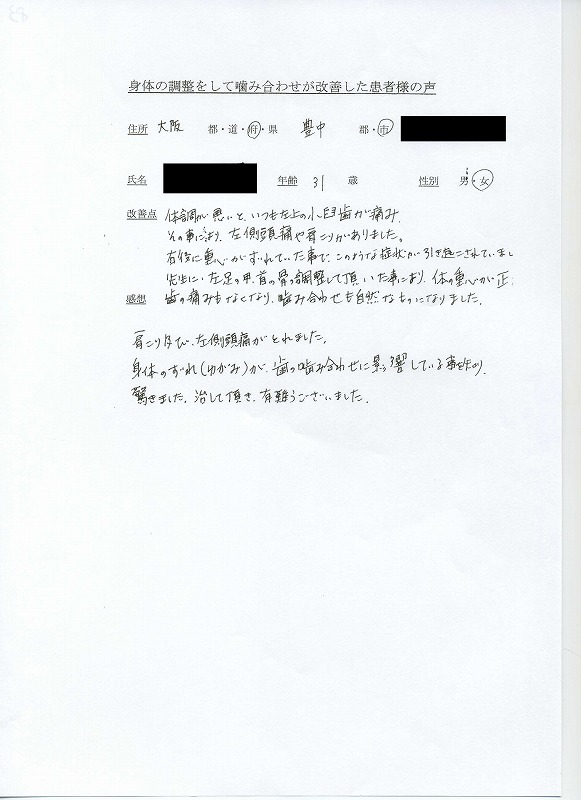 身体の調整をして噛み合わせが改善した患者様の声
住所 大阪 都・道・府・県 豊中 郡・市
氏名 年齢 31 歳 性別 男・女
改善点 体調が悪いと、いつも左上の小臼歯が痛み、
その事により、左側頭痛や肩こりがありました。
右後に重心がずれていた事で、このような症状が引き起こされていまし
先生に、左足の甲、首の骨の調整して頂いた事により、体の重心が正
感想 歯の痛みもなくなり、噛み合わせも自然なものになりました。
肩こり及び、左側頭痛がとれました。
身体のずれ(ゆがみ)が、歯の噛み合わせに影響している事を知り、
驚きました。治して頂き、有難うございました。